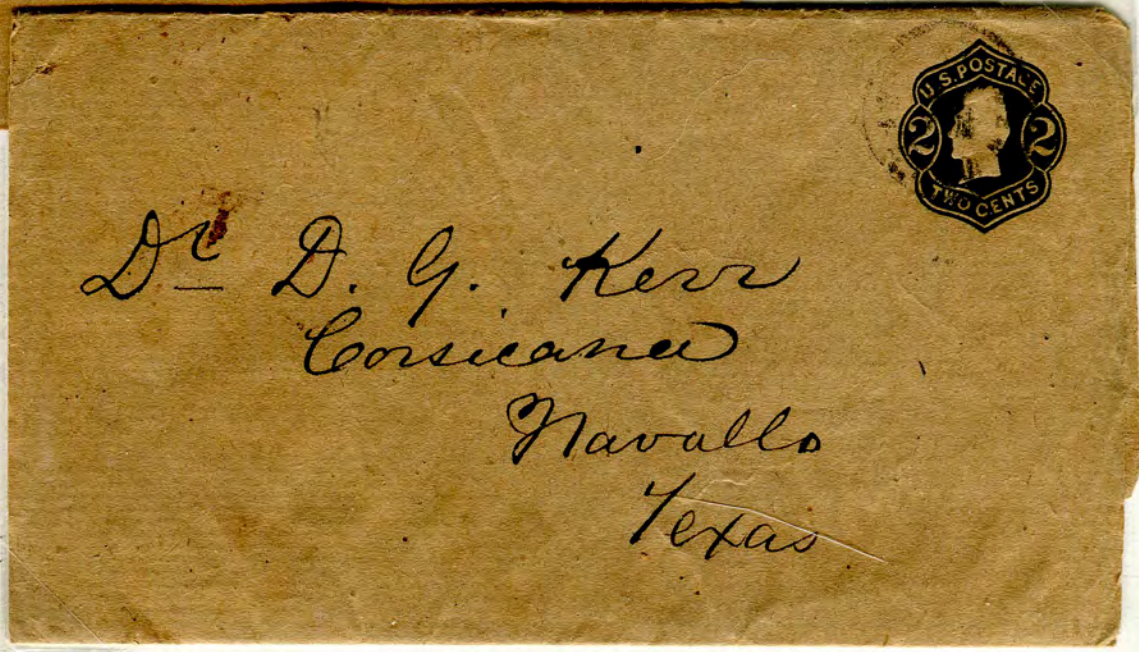 U.S. POSTAGE
2 2
TWO CENTS
Dr D. G. Kerr
Corsicana
Navallo
Texas